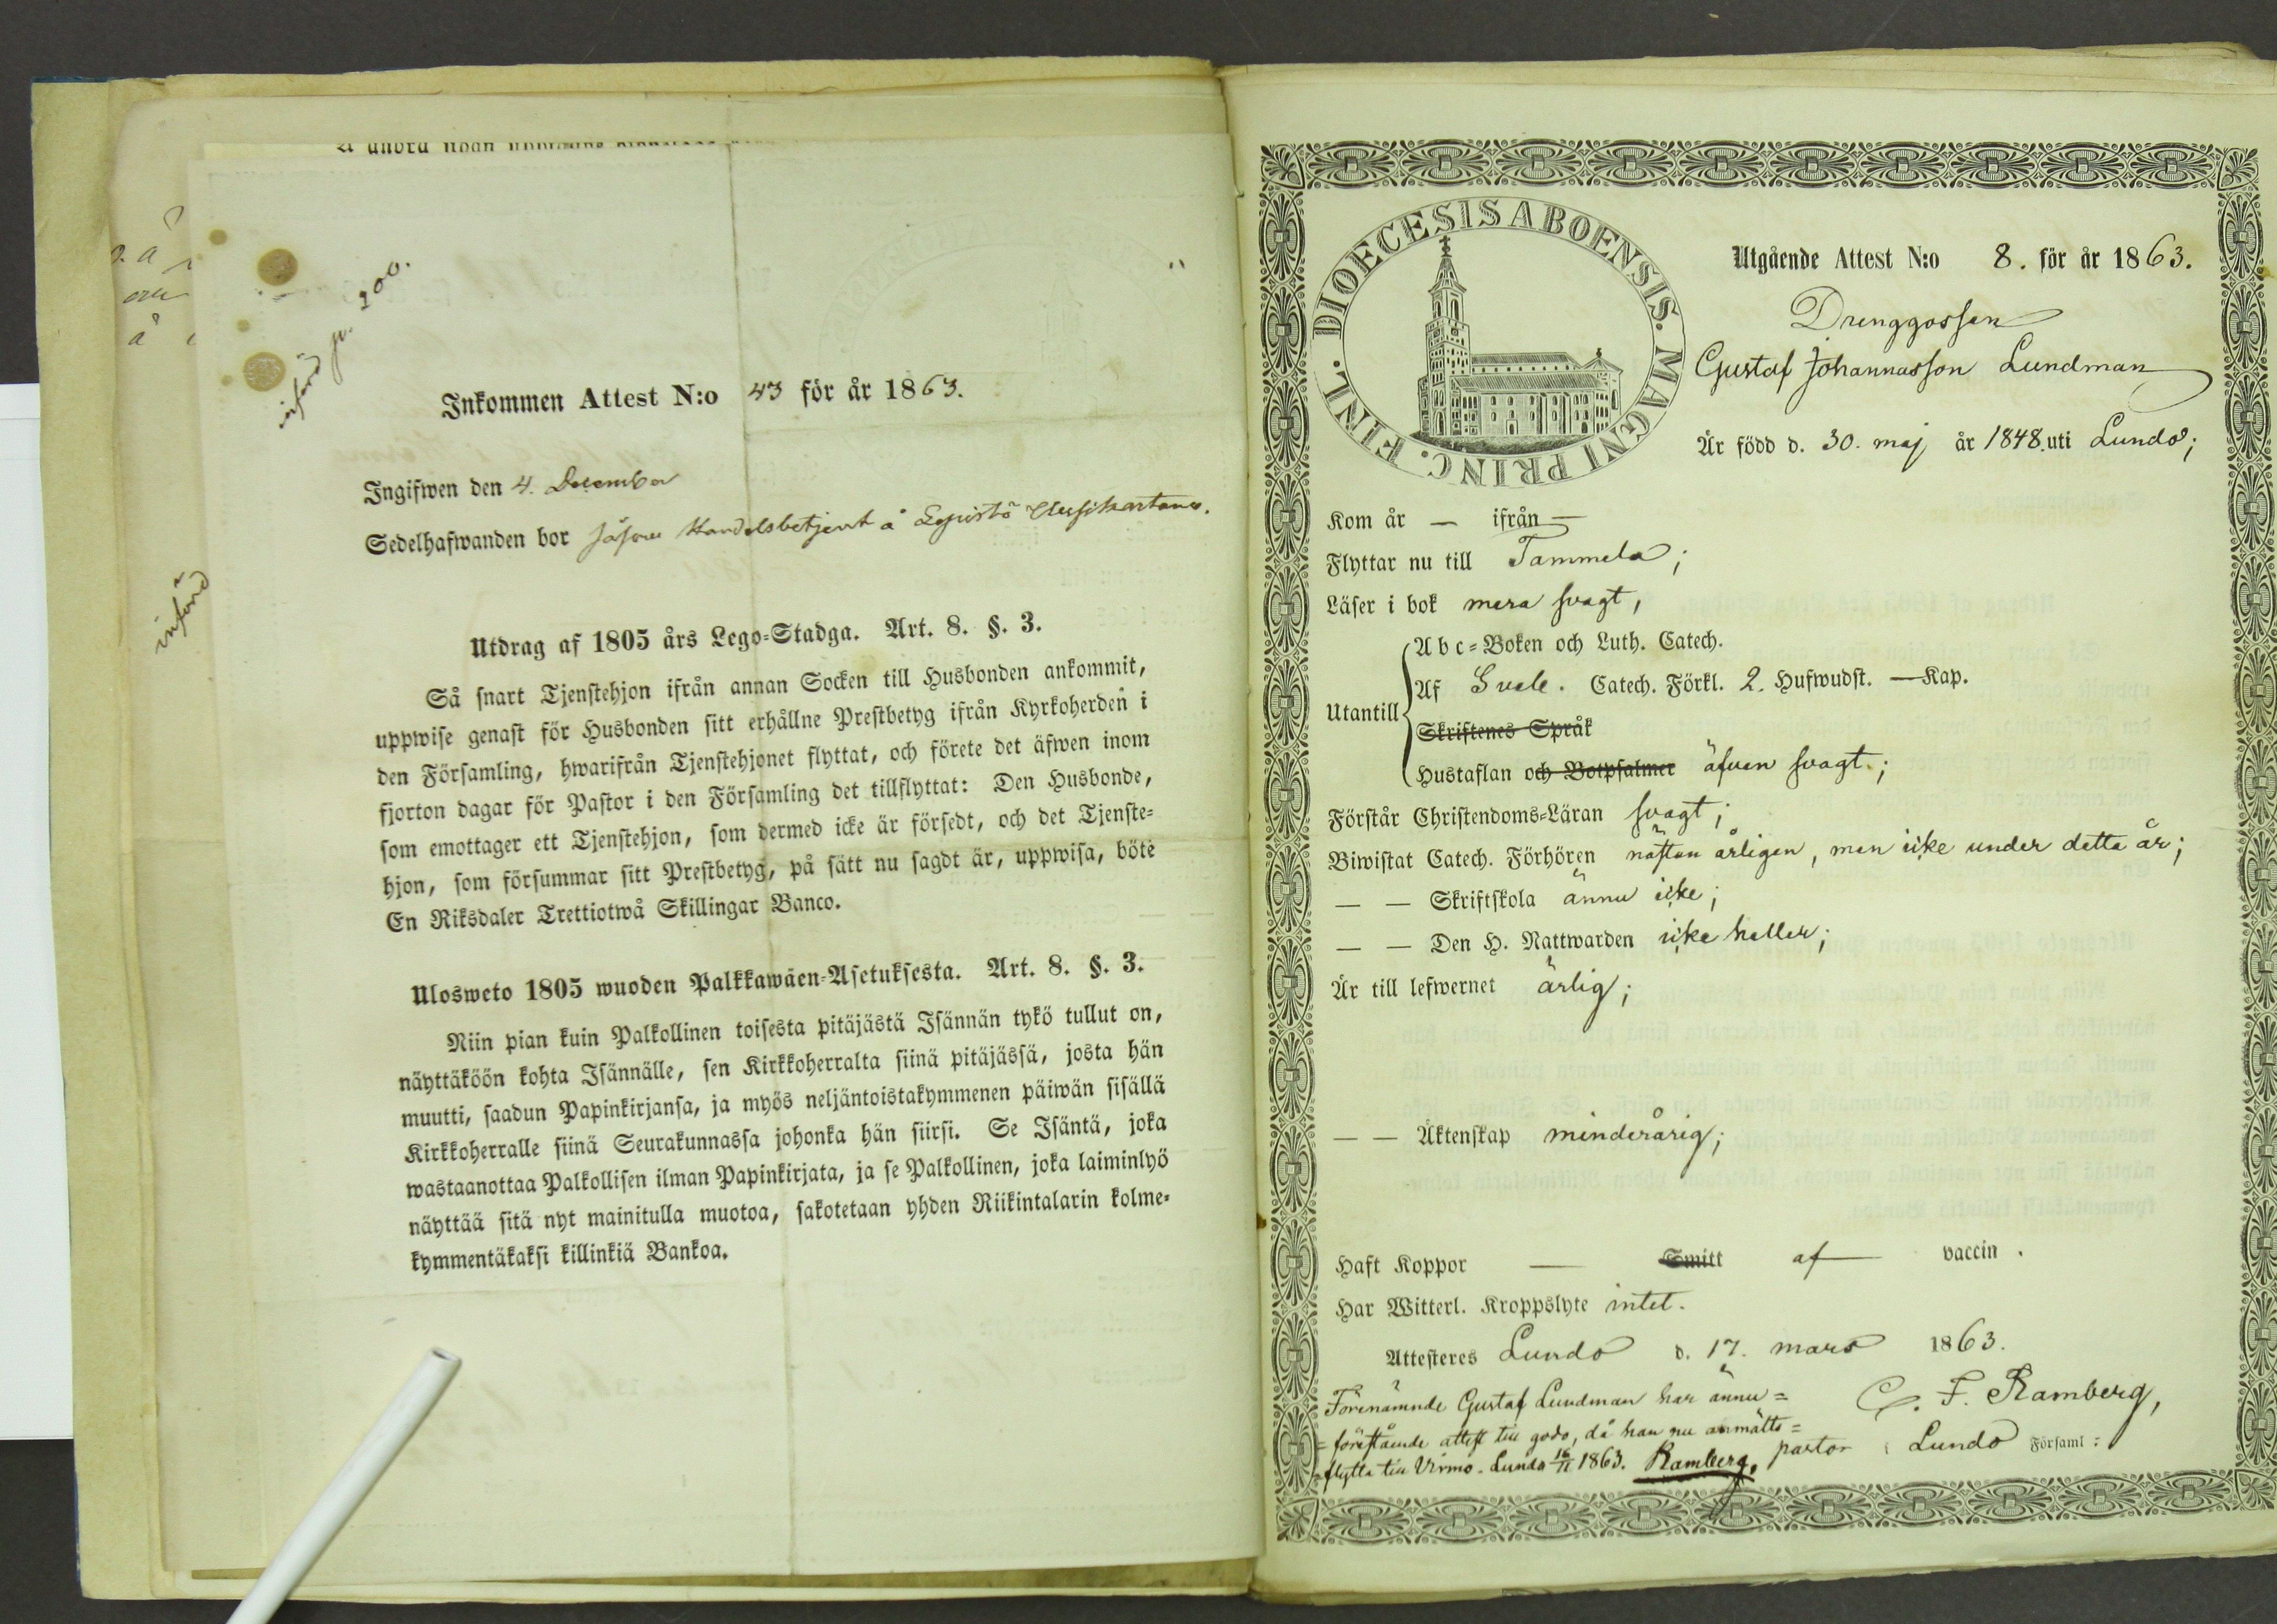 införd
införd p. 200.
Inkommen Attest N:o 43 för år 1863.
Ingifwen den 4. December
Sedelhafwanden bor såsom Handelsbetjent å Lepistö Uusikartano.
Utdrag af 1805 års Lego-Stadga. Art. 8. §. 3.
Så snart Tjenstehjon ifrån annan Socken till Husbonden ankommit,
uppwise genast för Husbonden sitt erhållne Prestbetyg ifrån Kyrkoherden i
den Församling, hwarifrån Tjenstehjonet flyttat, och förete det äfwen inom
fjorton dagar för Pastor i den Församling det tillflyttat: Den Husbonde,
som emottager ett Tjenstehjon, som dermed icke är försedt, och det Tjenste-
hjon, som försummar sitt Prestbetyg, på sätt nu sagdt är, uppwisa, böte
En Riksdaler Trettiotwå Skillingar Banco.
Ulosweto 1805 wuoden Palkkawäen-Asetuksesta. Art. 8. §. 3.
Niin pian kuin Palkollinen toisesta pitäjästä Isännän tykö tullut on,
näyttäköön kohta Isännälle, sen Kirkkoherralta siinä pitäjässä, josta hän
muutti, saadun Papinkirjansa, ja myös neljäntoistakymmenen päiwän sisällä
Kirkkoherralle siinä Seurakunnassa johonka hän siirsi. Se Isäntä, joka
wastaanottaa Palkollisen ilman Papinkirjata, ja se Palkollinen, joka laiminlyö
näyttää sitä nyt mainitulla muotoa, sakotetaan yhden Riikintalarin kolme-
kymmentäkaksi killinkiä Bankoa.
DIOECESIS ABOENSIS. MAGNI PRINC. FINL.
Utgående Attest N:o 8. för år 1863.
Drenggossen
Gustaf Johannasson Lundman
Är född d. 30. maj år 1848. uti Lundo;
Kom år — ifrån —
Flyttar nu till Tammela;
Läser i bok mera svagt,
Utantill
Abc-Boken och Luth. Catech.
Af Sveb. Catech. Förkl. 2. Hufwudst. — Kap.
Skriftenes Språk
Hustaflan och Botpsalmer äfven svagt.;
Förstår Christendoms-Läran svagt;
Biwistat Catech. Förhören nästan årligen, men icke under detta år;
— — Skriftskola ännu icke;
— — Den H. Nattwarden icke heller;
Är till lefwernet ärlig;
— — Äktenskap minderårig;
Haft Koppor — Smitt af vaccin.
Har Witterl. Kroppslyte intet.
Attesteres Lundo d. 17. mars 1863.
C. F. Ramberg,
pastor i Lundo Församl:
Förenämnde Gustaf Lundman har ännu =
= förestående attest till godo, då han nu anmälts =
= flytta till Virmo. Lundo 16/11 1863. Ramberg.